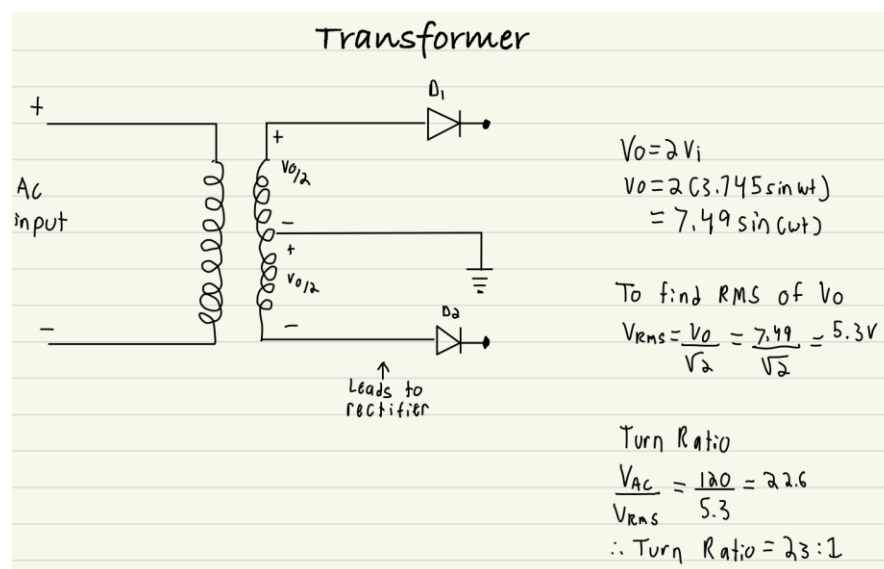 Transformer
D1
+
+
Vo/2
AC
input
−
+
Vo/2
−
−
D2
↑
Leads to
rectifier
Vo=2Vi
Vo=2(3.745sinwt)
= 7.49 sin(wt)
To find RMS of Vo
VRms = Vo/√2 = 7.49/√2 = 5.3V
Turn Ratio
VAC/VRms = 120/5.3 = 22.6
∴ Turn Ratio = 23:1